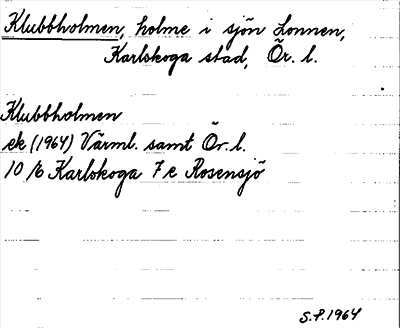 Klubbholmen, holme i sjön Lonnen,
Karlskoga stad, Ör. l.
Klubbholmen
ek (1964) Värml. samt Ör. l.
10/6 Karlskoga 7 e Rosensjö
S.P. 1964